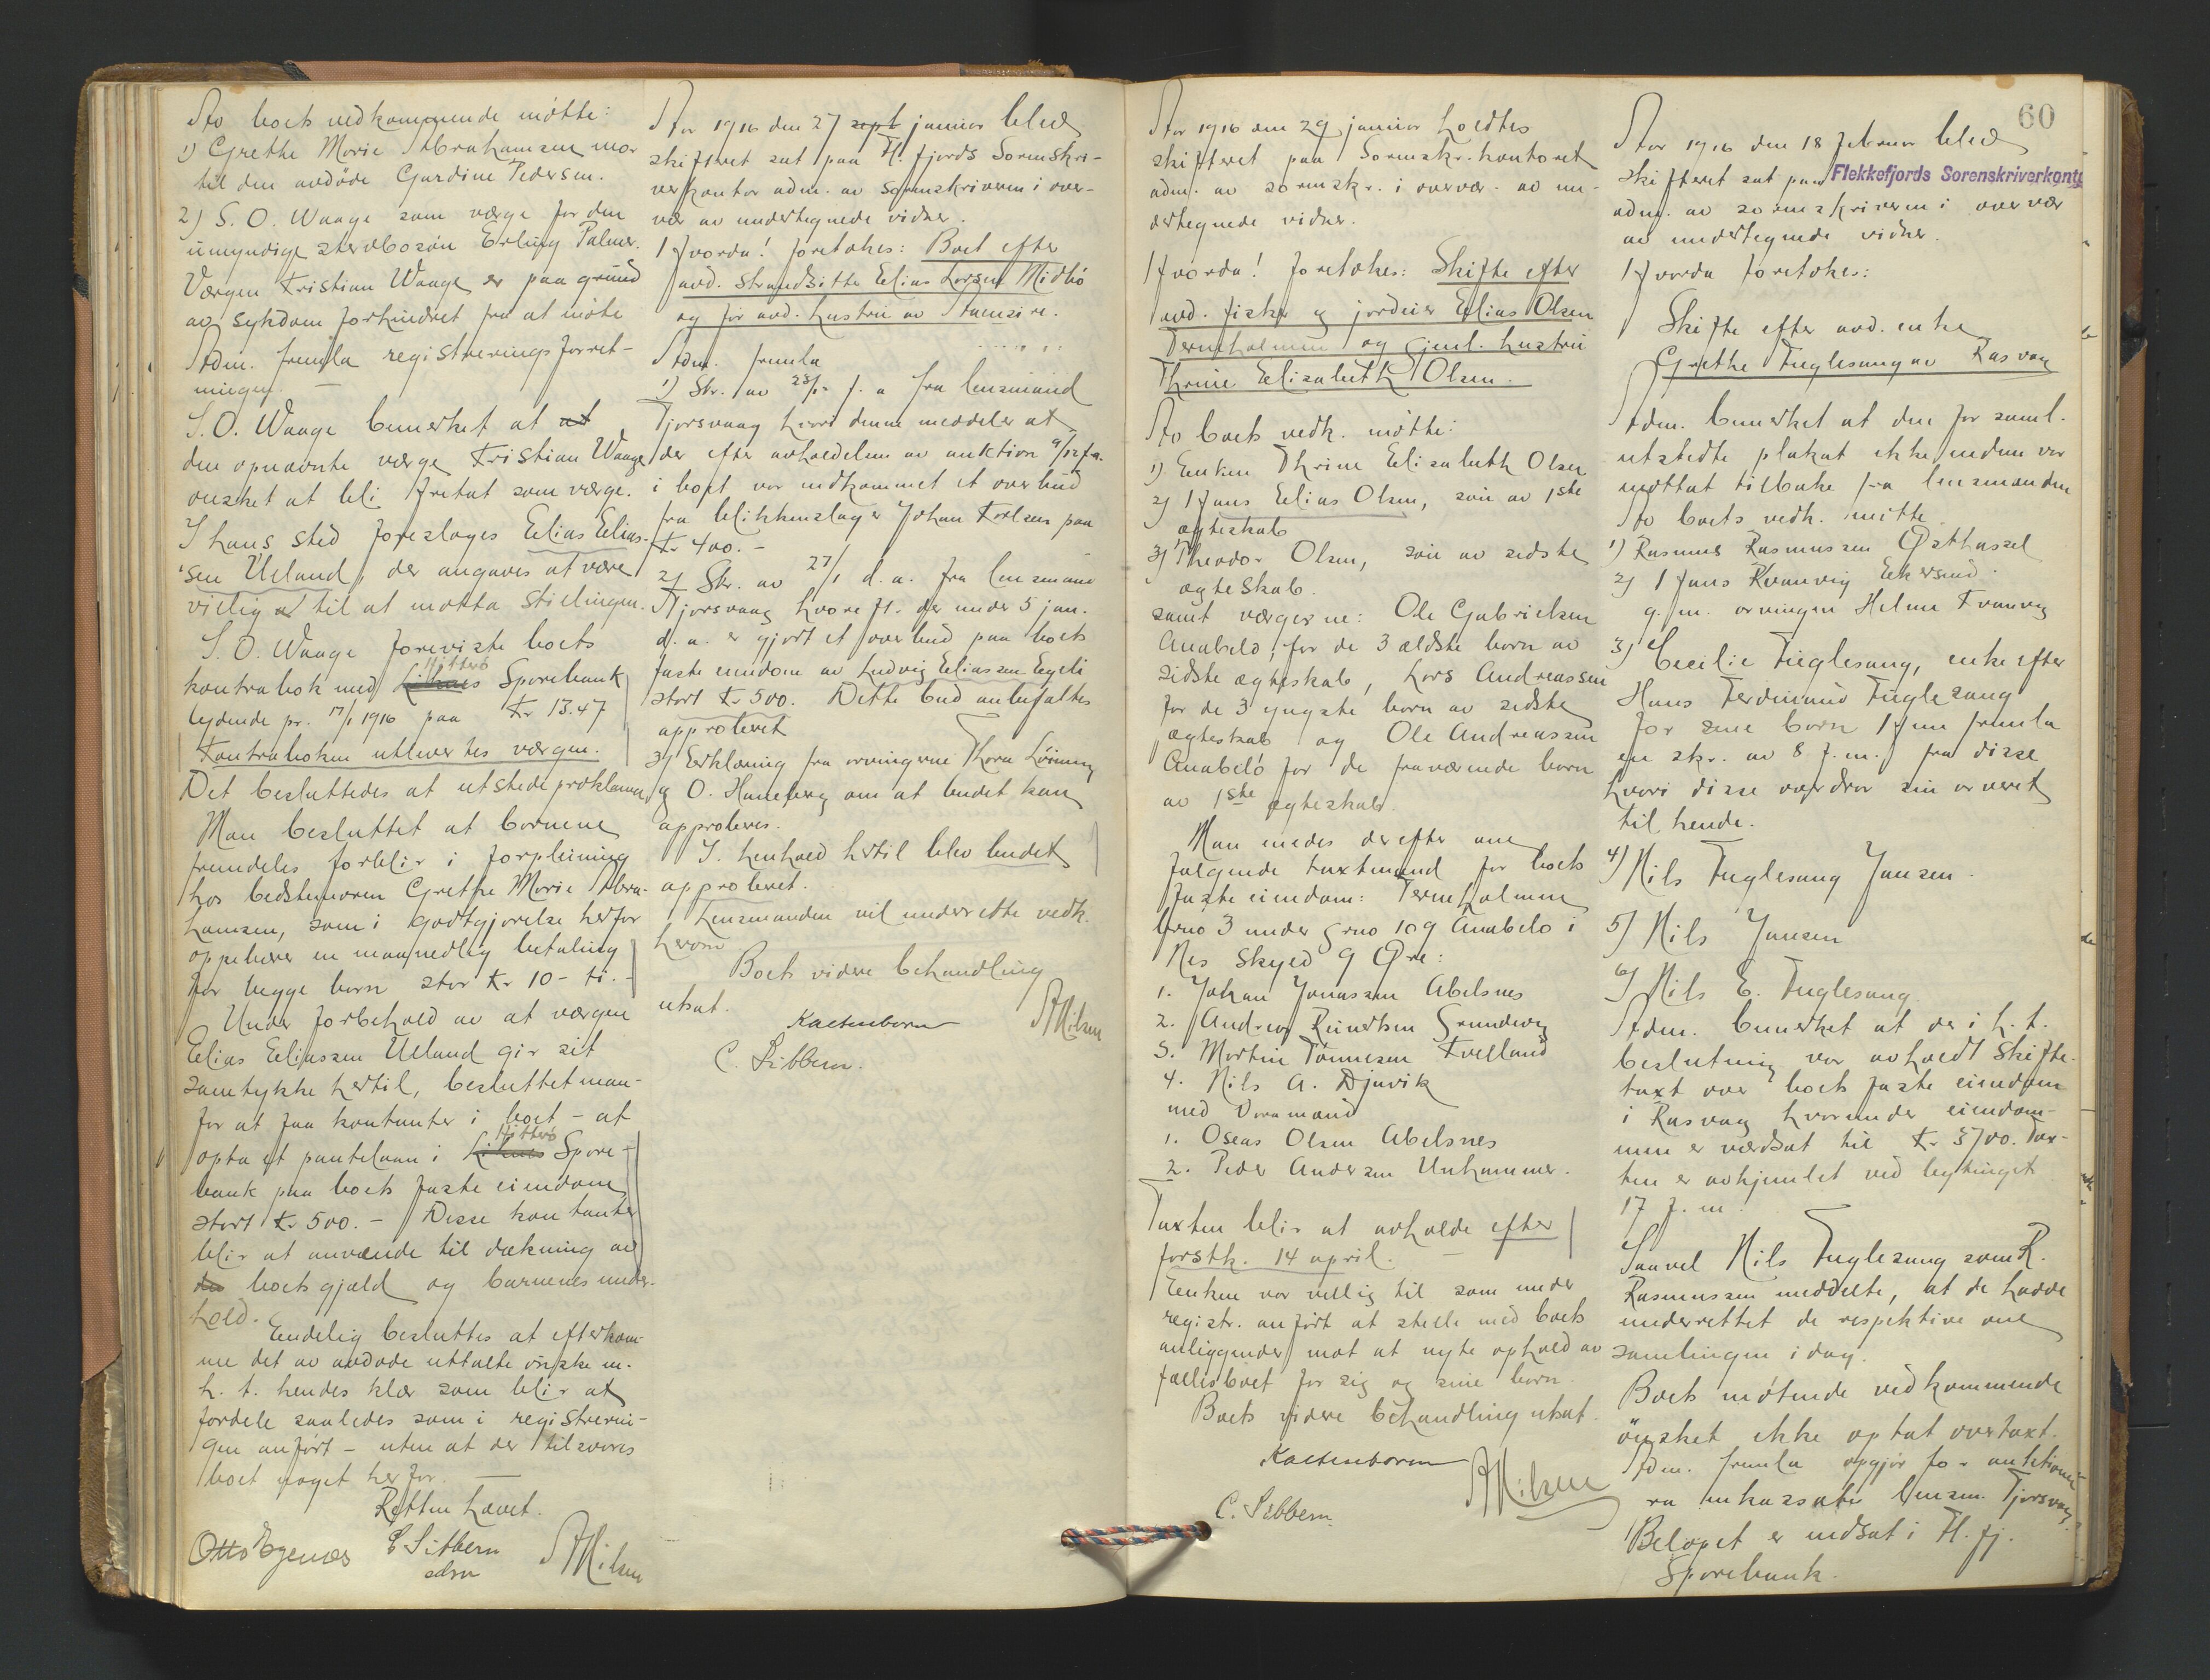 For boets vedkommende møtte:
1) Grethe Marie Abrahamsen mor
til den avdöde Gurdine Pedersen.
2) S. O. Waage som værge for den
umyndige stervbosön Erling Palmer.
Værgen Kristian Waage er paa grund
av sykdom forhindret fra at möte
Adm. fremla registreringsforret-
ningen. —
S. O. Waage bemerket at
den opnævnte værge Kristian Waage
önsket at bli fritat som værge.
I hans sted foreslages Elias Elias-
sen Ueland, der angaves at være
villig til at motta stillingen.
S. O. Waage foreviste boets
kontrabok med Hitterö Sparebank
lydende pr. 17/1 1916 paa Kr 13.47
Kontraboken utlevertes værgen.
Det besluttedes at utstede proklama
Man besluttet at børnene
fremdeles forblir i forpleining
hos bedstemoren Grethe Marie Abra-
hamsen, som i godtgjørelse herfor
oppebærer en maanedlig betaling
for begge børn stor Kr 10 - ti. -
Under forbehold av at værgen
Elias Eliassen Ueland gir sit
samtykke hertil, besluttet man -
for at faa kontanter i boet - at
opta et pantelaan i Hitterö Spare-
bank paa boets faste eiendom
stort Kr 500. - Disse kontanter
blir at anvende til dækning av
boets gjæld og barnenes under-
hold.
Endelig besluttes at efterkom-
me det av avdøde uttalte önske m.
h. t. hendes klær som blir at
fordele saaledes som i registrerin-
gen anført - uten at der tilsvares
boet noget herfor. —
Retten hævet.
Otto Egenæs C Sibbern AMilsen
Aar 1916 den 27 sept januar blev
skifteret sat paa Fl. fjords Sorenskri-
verkontor adm. av sorenskriveren i over-
vær av undertegnede vidner.
Hvorda! foretokes: Boet efter
avd. strandsitter Elias Larsen Midbö
og för avd. hustru av
Adm. fremla
1) Skr. av 28/12 f. a fra lensmand
Tjorsvaag hvori denne meddeler at
der efter avholdelsen av auktion 9/12 f.a.
i boet var indkommet et overbud
fra blikkenslager Johan Karlsen paa
Kr 400. -
2) Skr. av 27/1 d. a. fra lensmand
Tjorsvaag hvoreft. der under 5 jan.
d. a. er gjort et overbud paa boets
faste eiendom av Ludvig Eliassen Egeli
stort Kr 500. Dette bud anbefaltes
approberet
3) Erklæring fra arvingerne Thora Lörning
og O. Haneberg om at budet kan
approberes.
I henhold hertil blev budet
approberet.
Lensmanden vil underrette vedk.
herom
Boets videre behandling
utsat.
Kaltenborn AMilsen
C. Sibbern.
60
Aar 1916 den 29 januar holdtes
skifteret paa Sorenskr. kontoret
adm. av sorenskr. i overvær. av un-
dertegnede vidner.
Hvorda! foretokes: Skifte efter
avd. fisker og jordeier Elias Olsen
Terneholmen og gjenl. hustru
Thrine Elisabeth Olsen.
For boets vedk. møtte:
1) Enken Thrine Elisabeth Olsen
2) Hans Elias Olsen, sön av 1ste
egteskab
3) Theodor Olsen, sön av sidste
egteskab.
samt værgerne: Ole Gabrielsen
Anabelö, for de 3 ældste børn av
sidste egteskab, Lars Andreassen
for de 3 yngste børn av sidste
egteskab og Ole Andreassen
Anabelö for de fraværende børn
av 1ste egteskab.
Man enedes derefter om
følgende takstmænd for boets
faste eiendom: Terneholmen
brno 3 under grno 109 Anabelö i
Nes skyld 9 Øre:
1. Johan Jonassen Abelsnes
2. Andreas Reiertsen Grundevig
3. Martin Tönnesen Kvelland
4. Nils A. Djuvik
med Varamænd
1. Oseas Olsen Abelsnes
2. Peder Andersen Unhammer.
Taxten blir at avholde efter
førstk. 14 april. —
Enken var villig til som under
registr. anført at stelle med boets
anliggender mot at nyte ophold av
fællesboet for sig og sine børn.
Boets videre behandling utsat.
Kaltenborn AMilsen
C. Sibbern.
Aar 1916 den 18 februar blev
skifteret sat paa Flekkefjords Sorenskriverkonto
adm. av sorenskriveren i overvær
av undertegnede vidner.
Hvorda foretokes:
Skifte efter avd. enke
Grethe Fuglesang av Rasvag
Adm. bemerket at den for saml.
utstedte plakat ikke endnu var
mottat tilbake fra lensmanden
For boets vedk. mötte
1) Rasmus Rasmussen Østhassel
2) Hans Kvanvig Ekersund
g. m. arvingen Helene Kvanvig
3) Cecilie Fuglesang, enke efter
Hans Ferdinand Fuglesang
for sine børn Hun fremla
en skr. av 8 f. m. fra disse
hvori disse overdrar sin arveret
til hende.
4) Nils Fuglesang Jansen.
5) Nils Jansen
6) Nils E. Fuglesang.
Adm. bemerket at der i h. t.
beslutning var avholdt skifte-
taxt over boets faste eiendom
i Rasvag hvorunder eiendom-
men er værdsat til Kr 3700. Tax-
ten er avhjemlet ved bytinget
17 f. m.
Saavel Nils Fuglesang som R.
Rasmussen meddelte, at de hadde
underrettet de respektive om
samlingen idag.
Boets møtende vedkommende
önsket ikke optat overtaxt.
Adm. fremla opgjør for auktionen
ra inkassator lensm. Tjorsvag.
Beløpet er indsat i Fl. fj.
Sparebank.